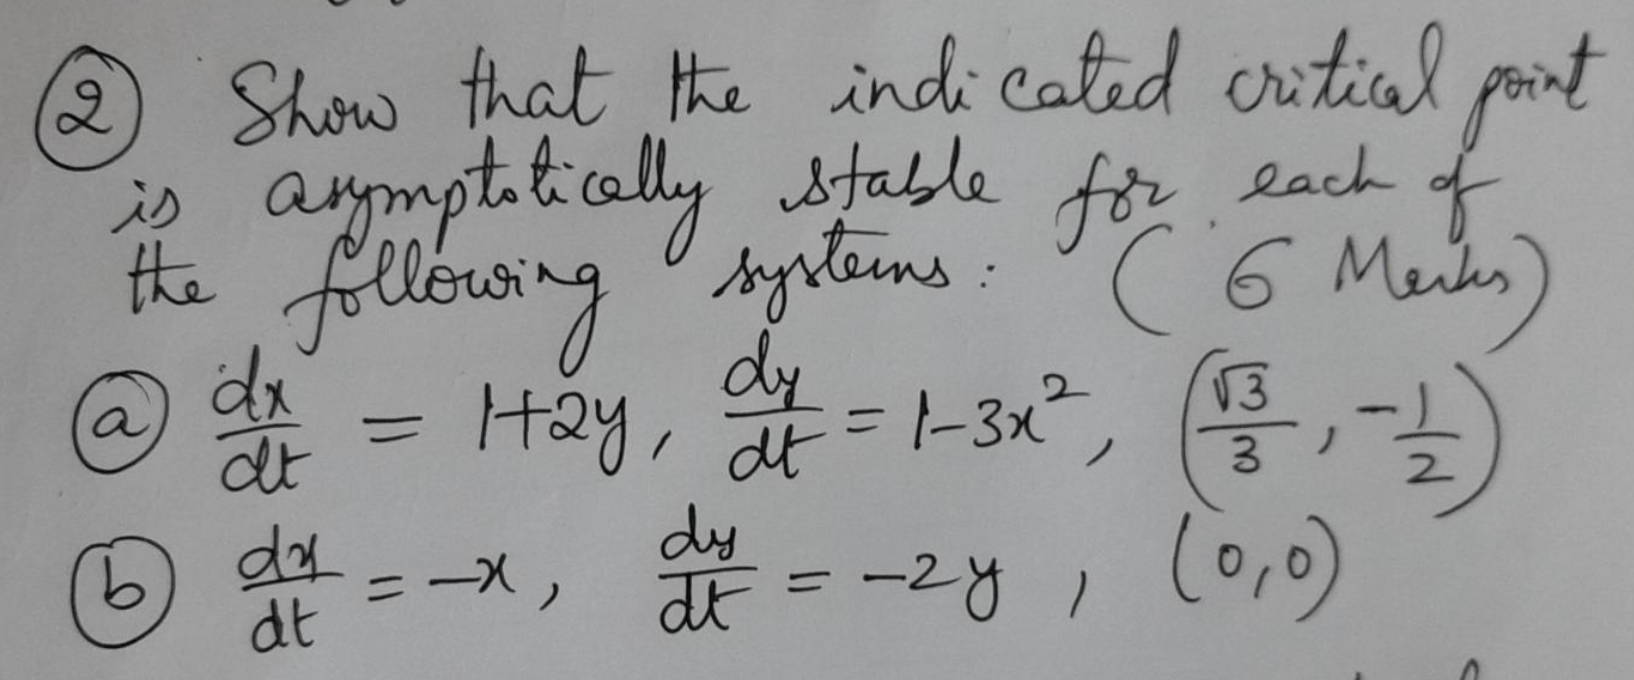 ② Show that the indicated critical point
is asymptotically stable for each of
the following systems: (6 Marks)
ⓐ dx/dt = 1+2y, dy/dt = 1-3x², (√3/3, -1/2)
ⓑ dx/dt = -x, dy/dt = -2y, (0,0)